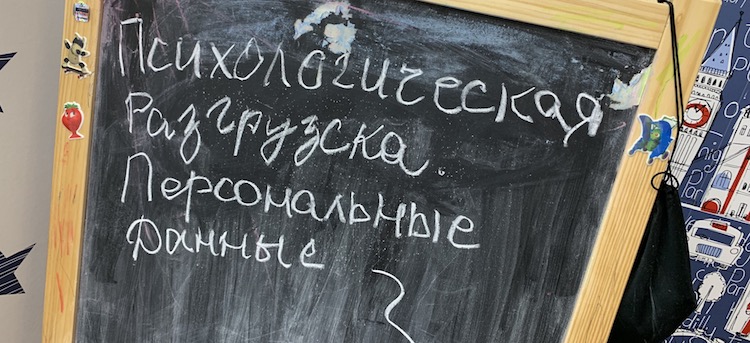 Психологическая
Разгрузска.
Персональные
Данные